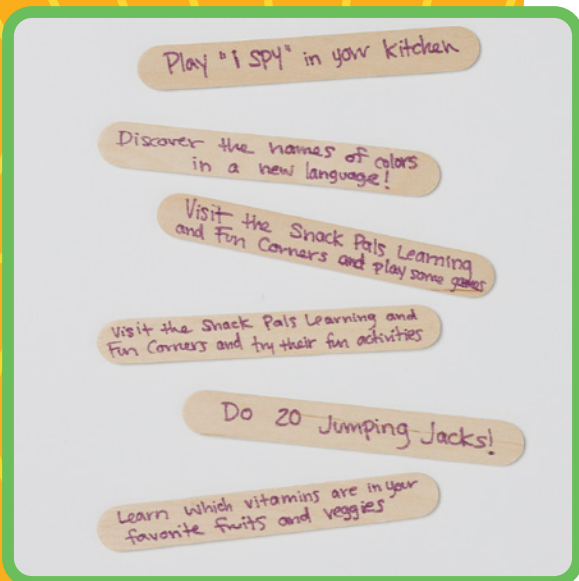 Play "i SPY" in your kitchen
Discover the names of colors
in a new language!
Visit the Snack Pals Learning
and Fun Corners and play some games
Visit the Snack Pals Learning and
Fun Corners and try their fun activities
Do 20 Jumping Jacks!
Learn which vitamins are in your
favorite fruits and veggies